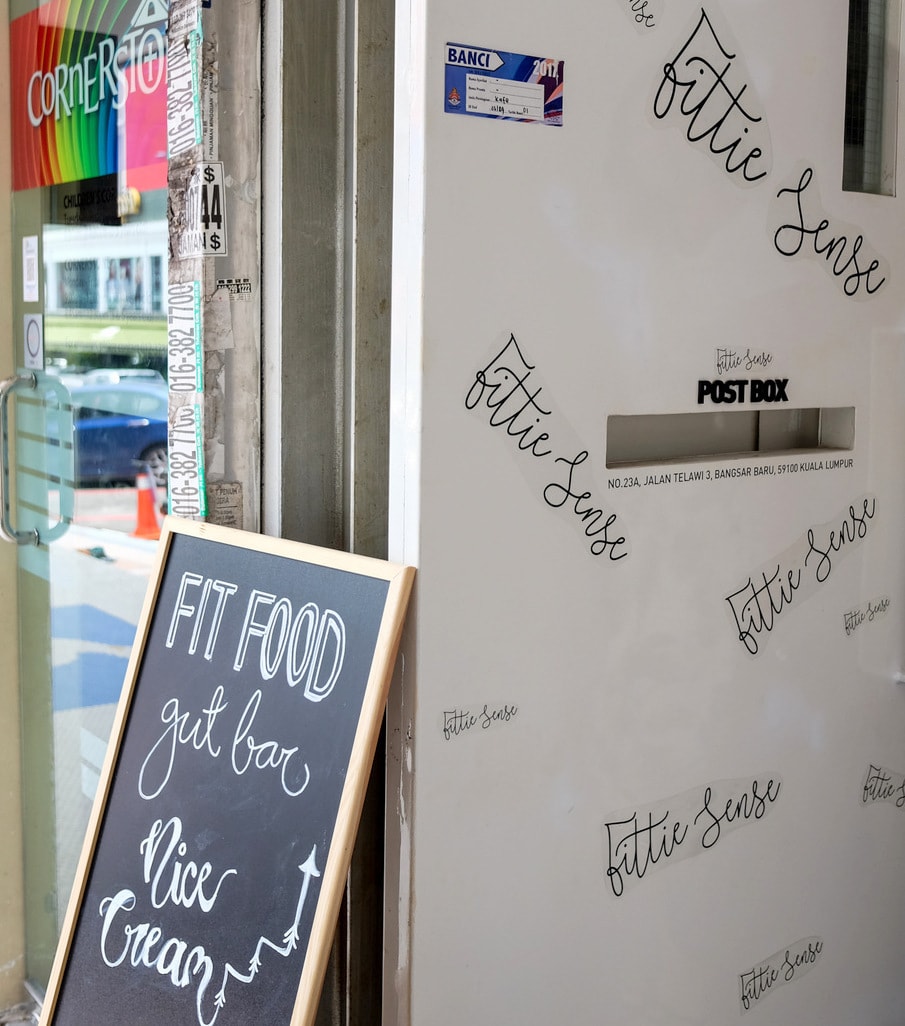 CORNERSTO
CHILDREN'S CO
016-382 7700
016-382 7700
016-382 7700
$
$
BANCI
2017
Kafe
01
Fittie
Sense
Fittie Sense
POST BOX
NO.23A, JALAN TELAWI 3, BANGSAR BARU, 59100 KUALA LUMPUR
Fittie Sense
Fittie Sense
Fittie Sense
Fittie Sense
Fittie Sense
Fittie Sense
FIT FOOD
gut bar
Nice
Cream